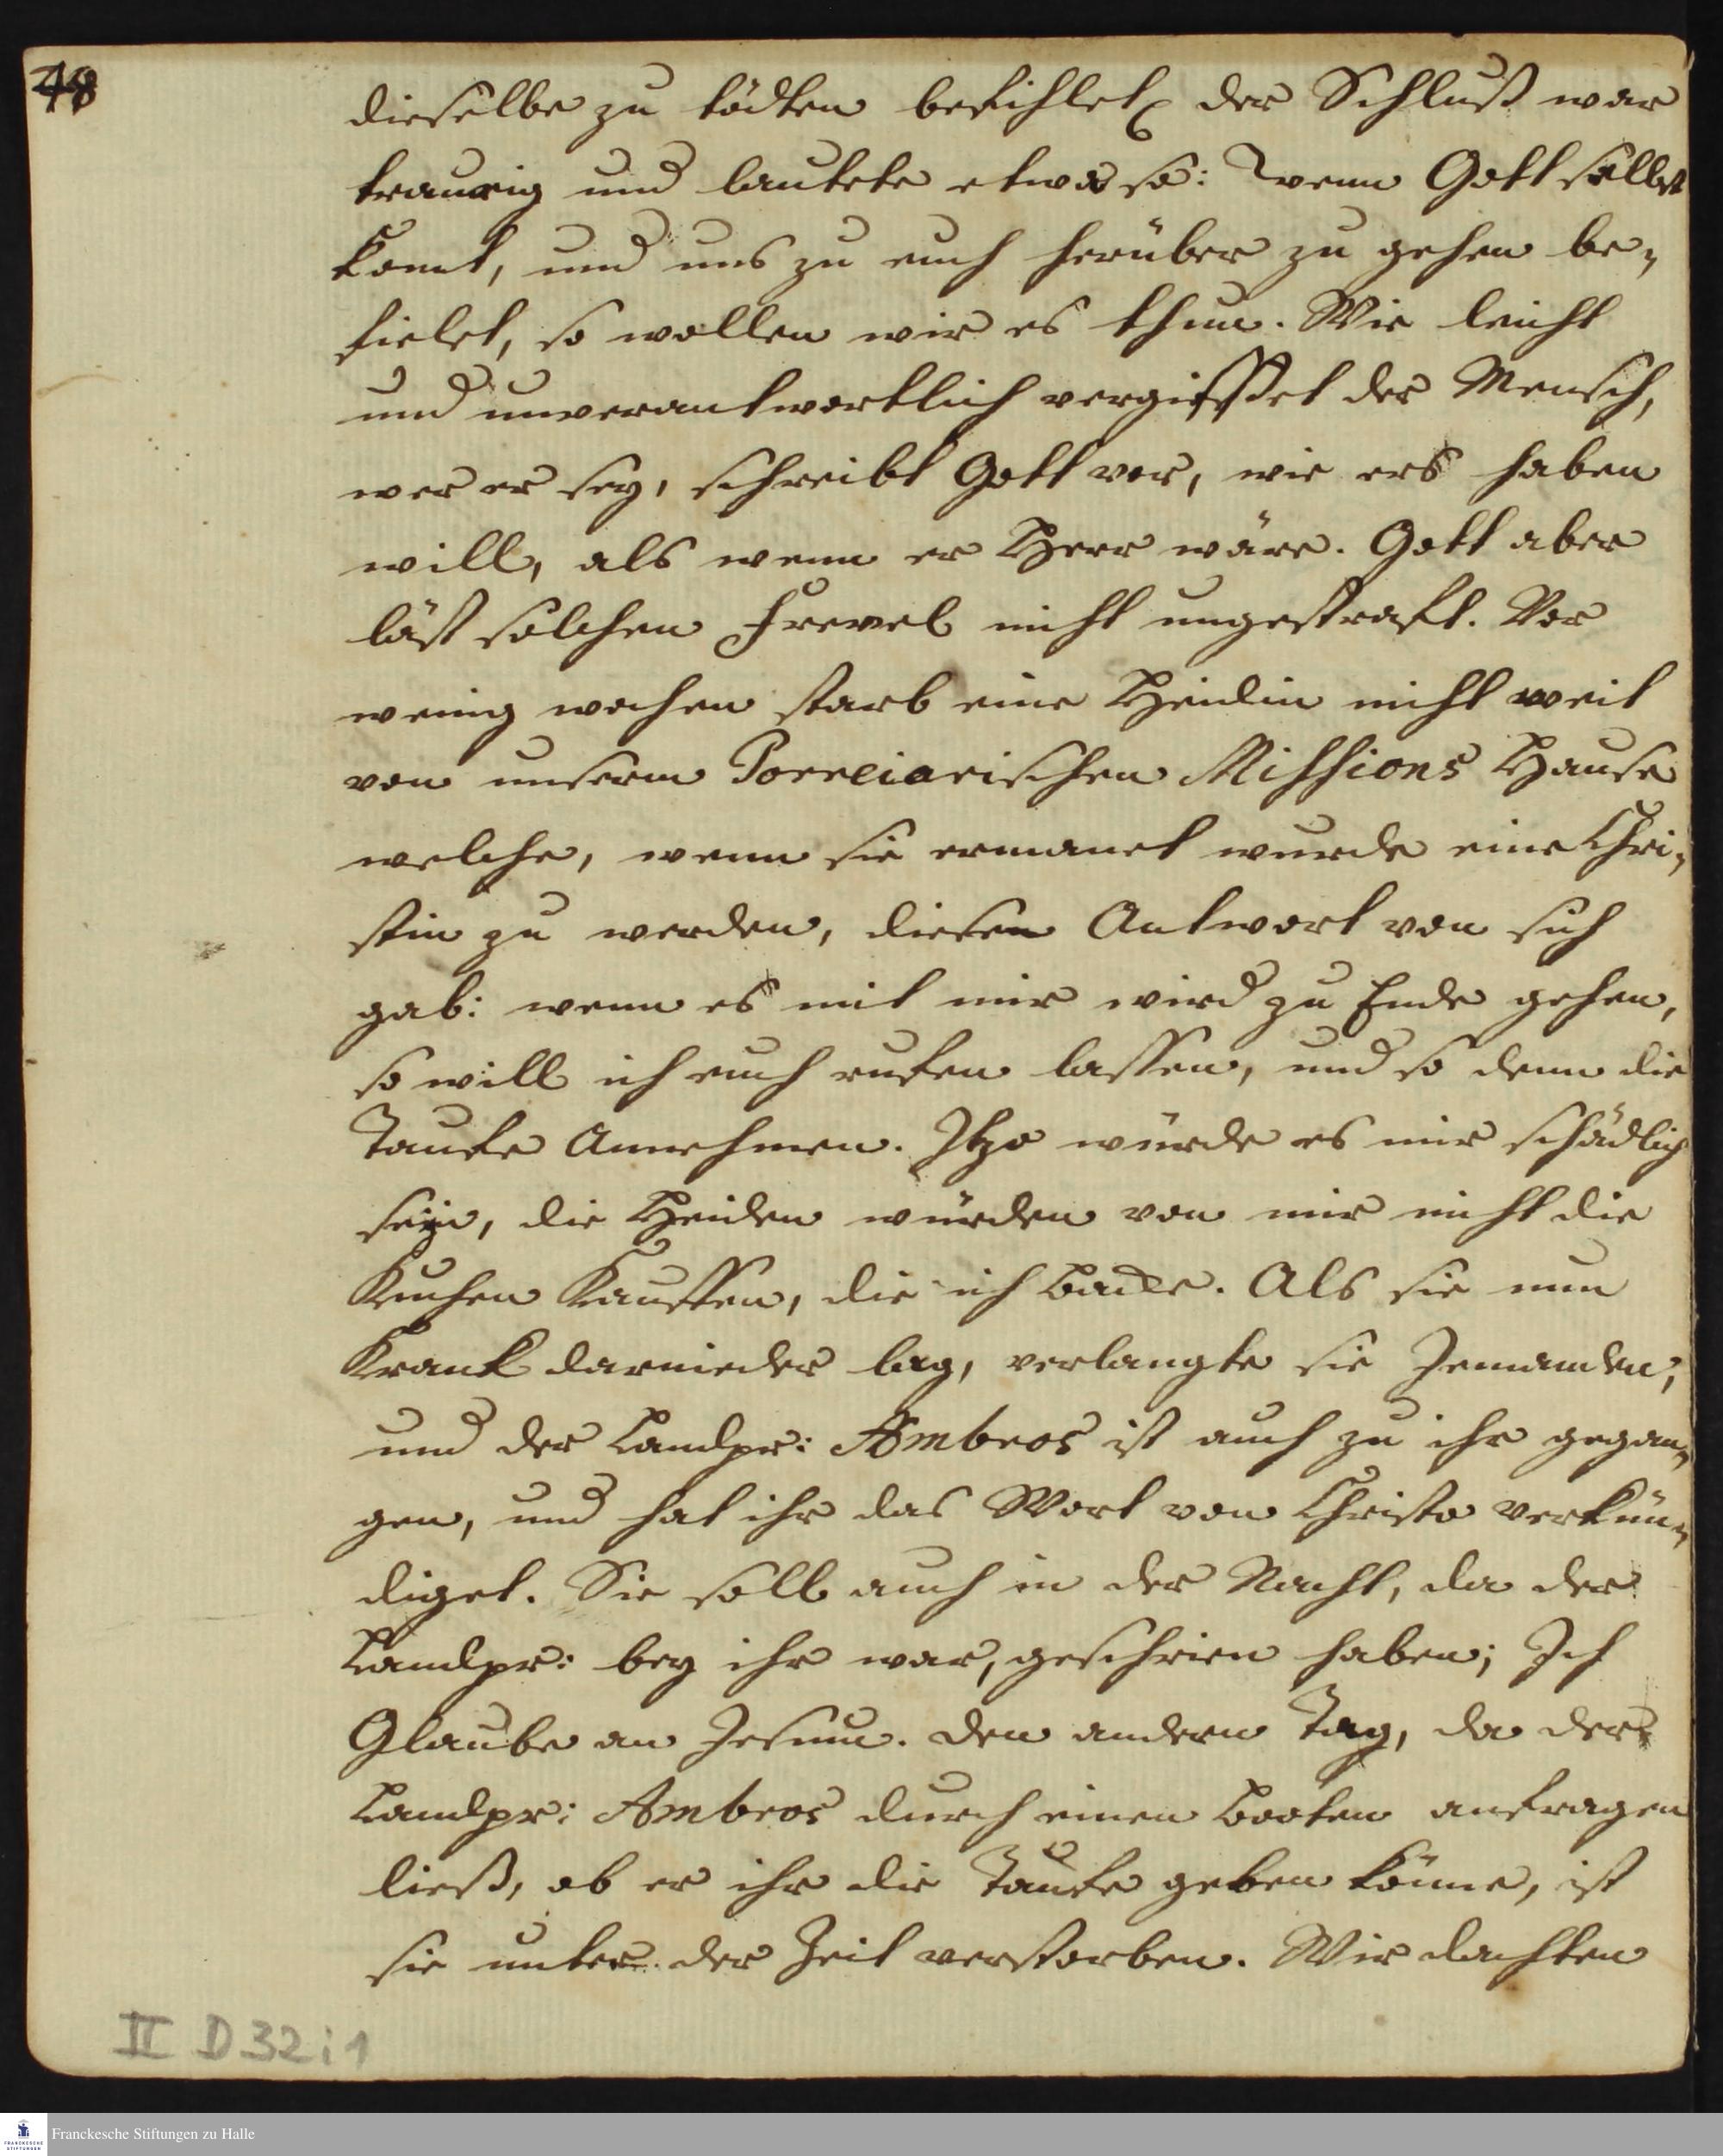 48
dieselbe zu tödten befihlet der Schluß war
traurig und lautete etwas so: wenn Gott selbst
komt, und uns zu euch herüber zu gehen be-
fielet, so wollen wir es thun. Wie leicht
und unverantwortlich vergisset der Mensch,
wer er sey, schreibt Gott vor, wie ers haben
will, als wenn er Herr wäre. Gott aber
läst solchen Frevel nicht ungestraft. Vor
wenig wochen starb eine Heidin nicht weit
von unserm Porreiarischen Missions Hause
welche, wenn sie ermanet wurde eine Chri-
stin zu werden, diesen Antwort von sich
gab: wenn es mit mir wird zu Ende gehen,
so will ich euch rufen lassen, und so denn die
Taufe Annehmen. Itzo würde es mir schädlich
seyn, die Heiden würden von mir nicht die
Kuchen Kauffen, die ich backe. Als sie nun
Krank darnieder lag, verlangte sie Jemanden,
und der Landpr: Ambros ist auch zu ihr gegan-
gen, und hat ihr das Wort von Christo verkün-
diget. Sie soll auch in der Nacht, da der
Landpr: bey ihr war, geschrien haben; Ich
Glaube an Jesum. den andern Tag, da der
Landpr: Ambros durch einen Booten anfragen
ließ, ob er ihr die Taufe geben könne, ist
sie unter der Zeit verstorben. Wir dachten
II D 32:1
Franckesche Stiftungen zu Halle